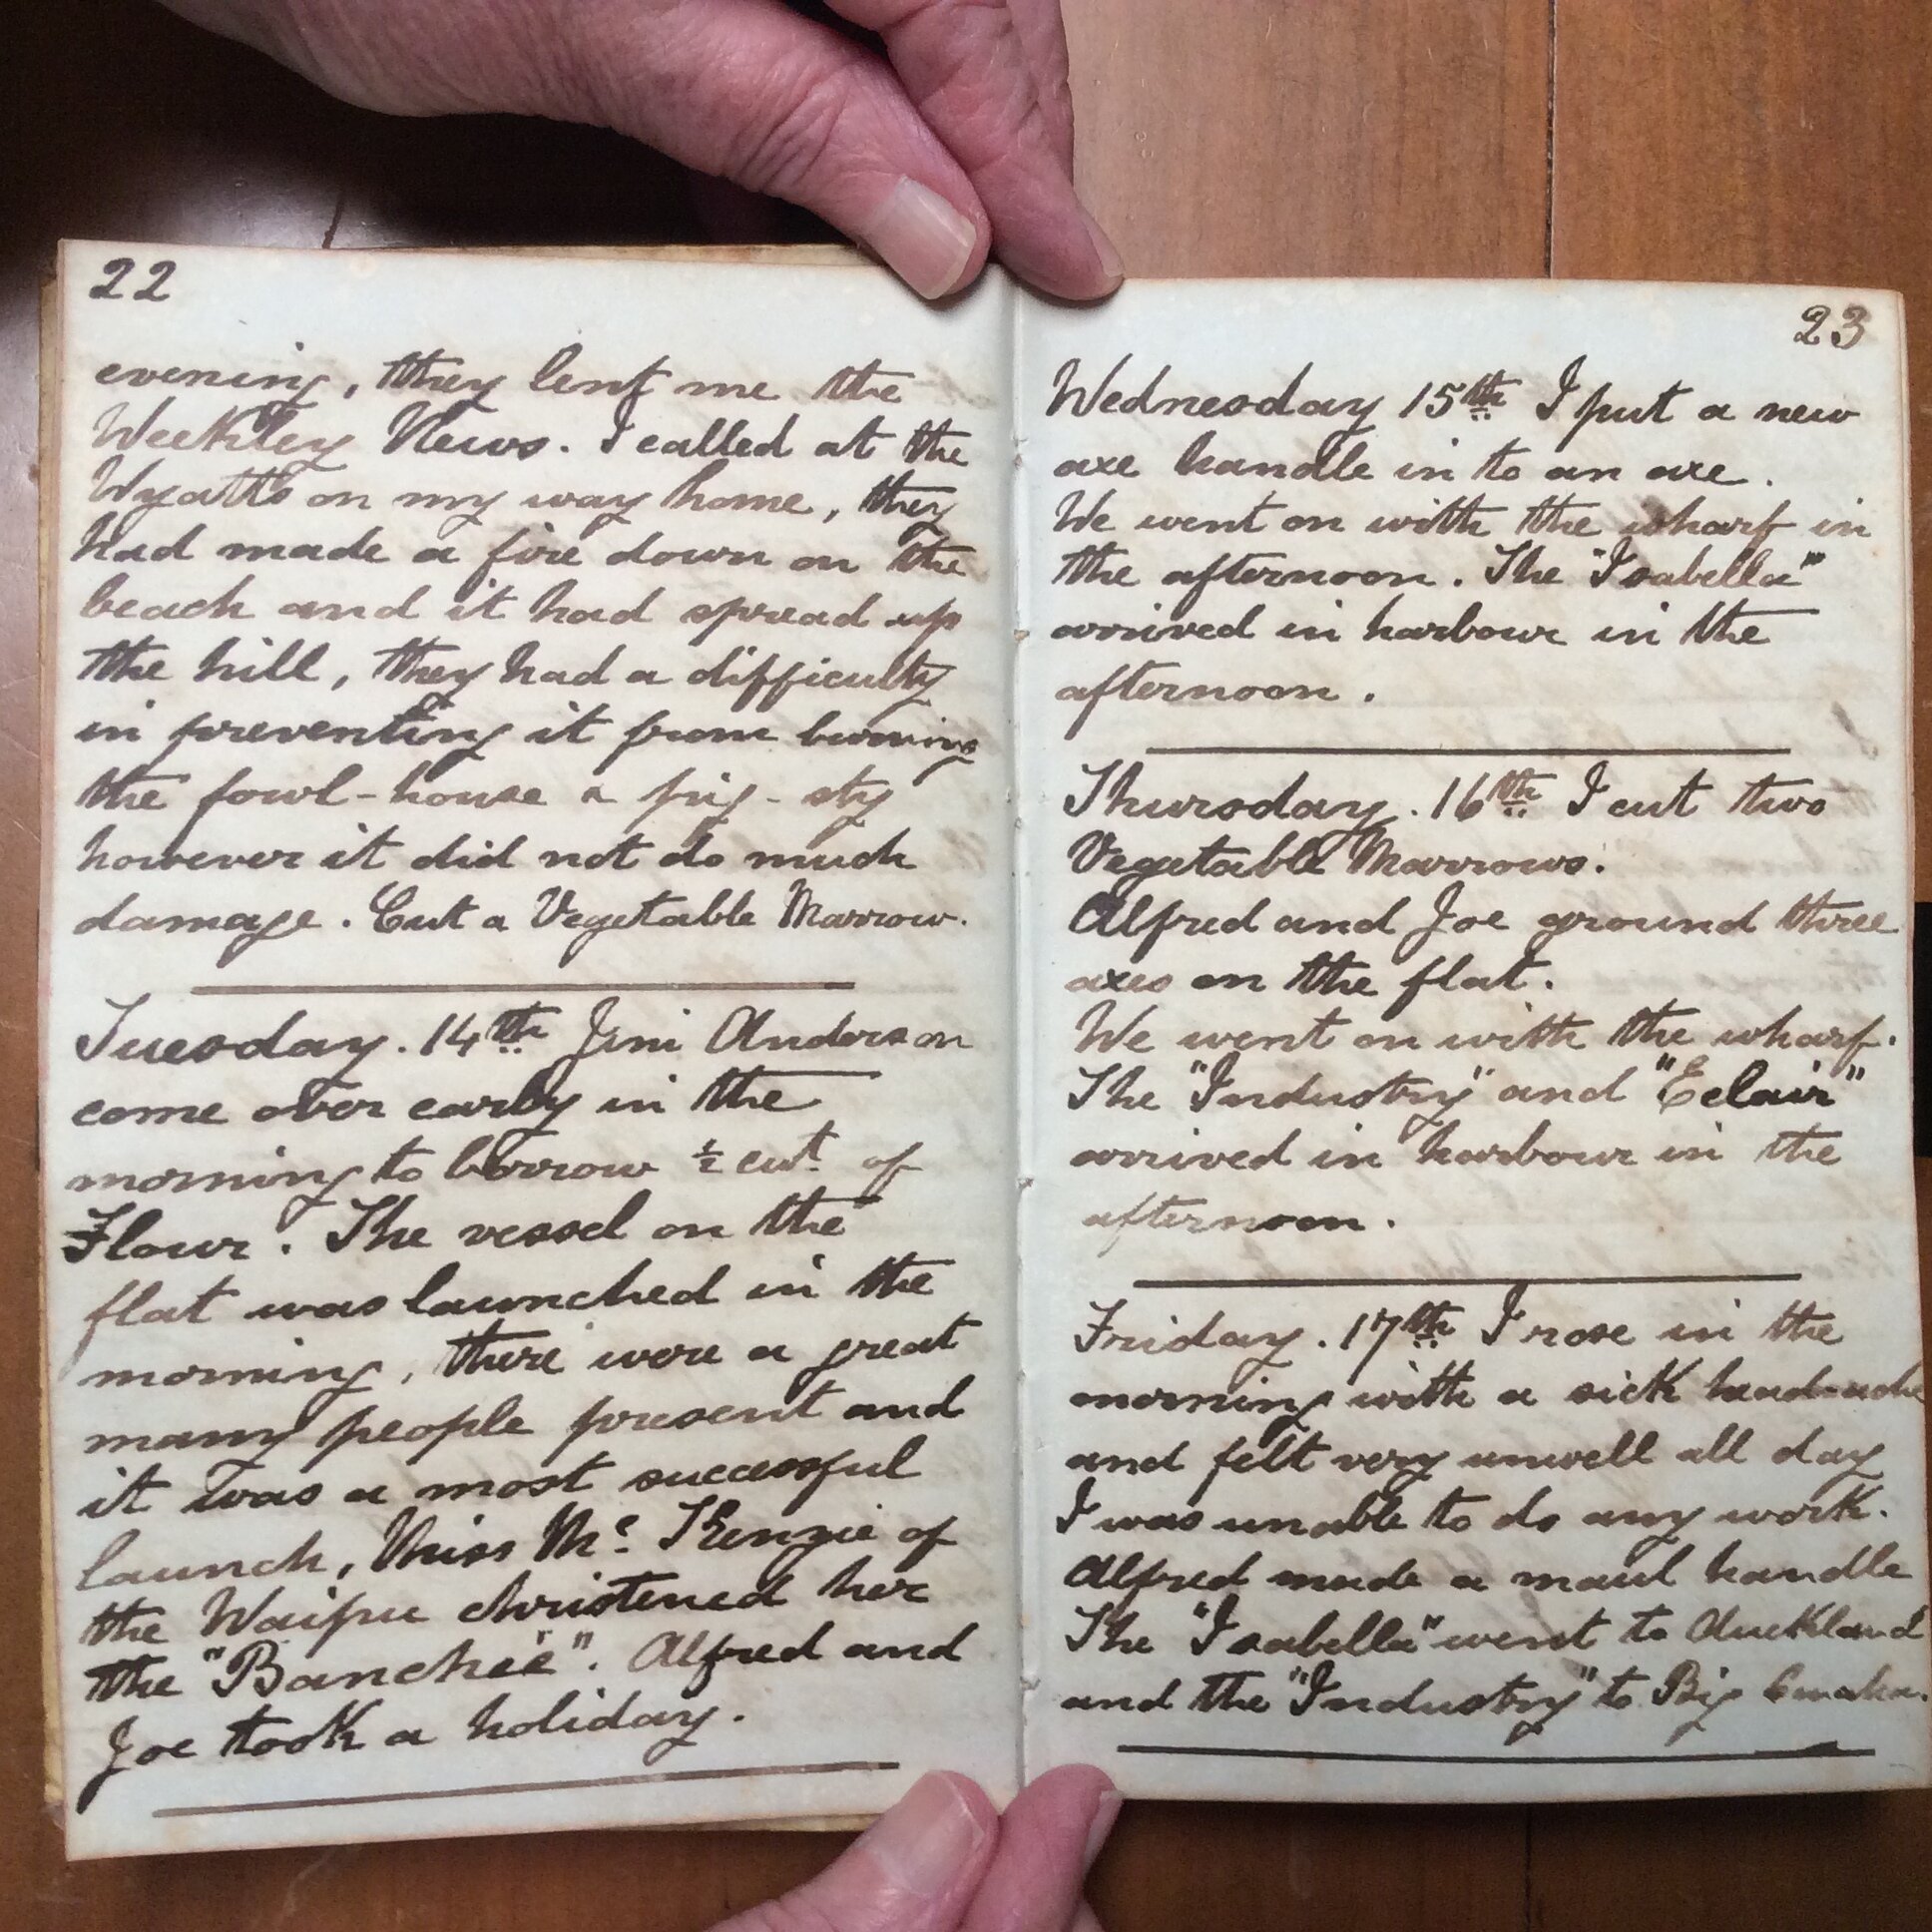 22
evening, they lent me the
Weekley News. I called at the
Wyatts on my way home, they
had made a fire down on the
beach and it had spread up
the hill, they had a difficulty
in preventing it from burning
the fowl-house & pig-sty
however it did not do much
damage. Cut a Vegetable Marrow.
Tuesday. 14th Jim Anderson
come over early in the
morning to borrow ½ cwt. of
Flour. The vessel on the
flat was launched in the
morning, there were a great
many people present and
it was a most successful
launch, Miss Mc. Kenzie of
the Waipu christened her
the "Banchee". Alfred and
Joe took a holiday.
23
Wednesday 15th I put a new
axe handle in to an axe.
We went on with the wharf in
the afternoon. The "Isabella"
arrived in harbour in the
afternoon.
Thursday. 16th I cut two
Vegetable Marrows.
Alfred and Joe ground three
axes on the flat.
We went on with the wharf.
The "Industry" and "Eclair"
arrived in harbour in the
afternoon.
Friday. 17th I rose in the
morning with a sick head-ache
and felt very unwell all day
I was unable to do any work.
Alfred made a maul handle
The "Isabella" went to Auckland
and the "Industry" to Big Omaha.